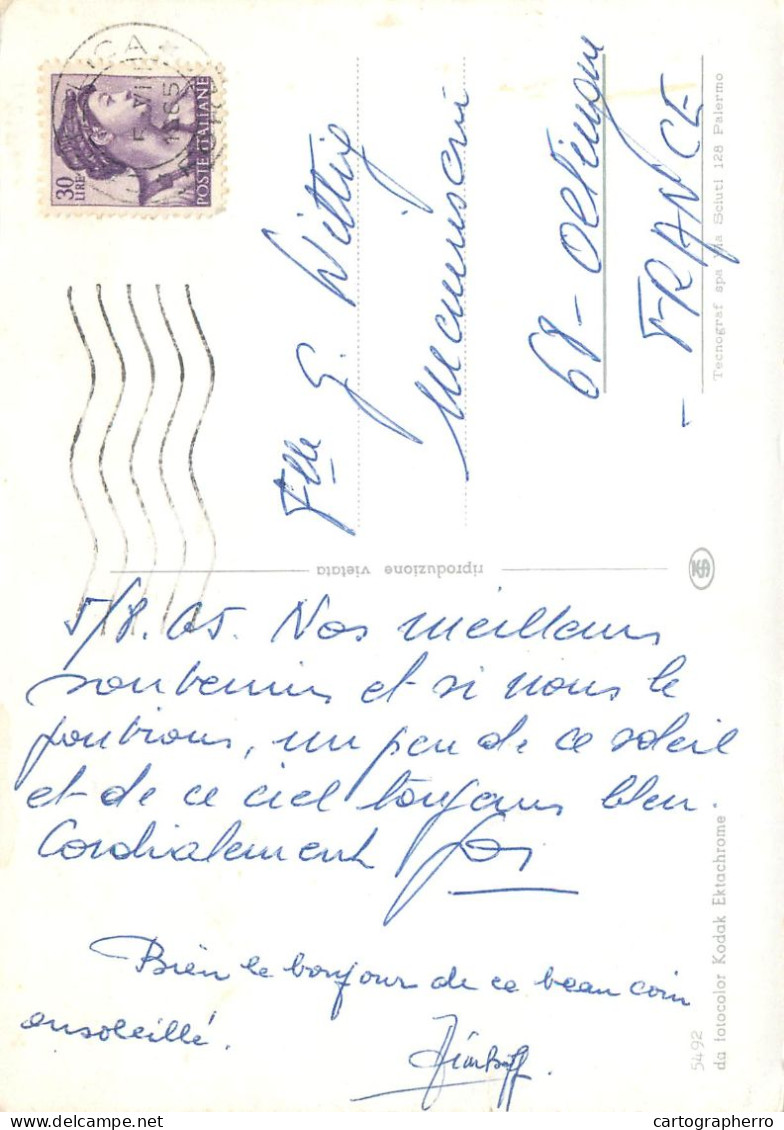 30
LIRE
POSTE ITALIANE
1965
Flle G. Wittig
68 - Oltingue
- FRANCE
riproduzione vietata
Tecnograf spa Via Sciuti 128 Palermo
5/8.65. Nos meilleurs
souvenirs et si nous le
pouvions, un peu de ce soleil
et de ce ciel toujours bleu.
Cordialement
Bien le bonjour de ce beau coin
ensoleillé.
5492
da fotocolor Kodak Ektachrome
cartographerro